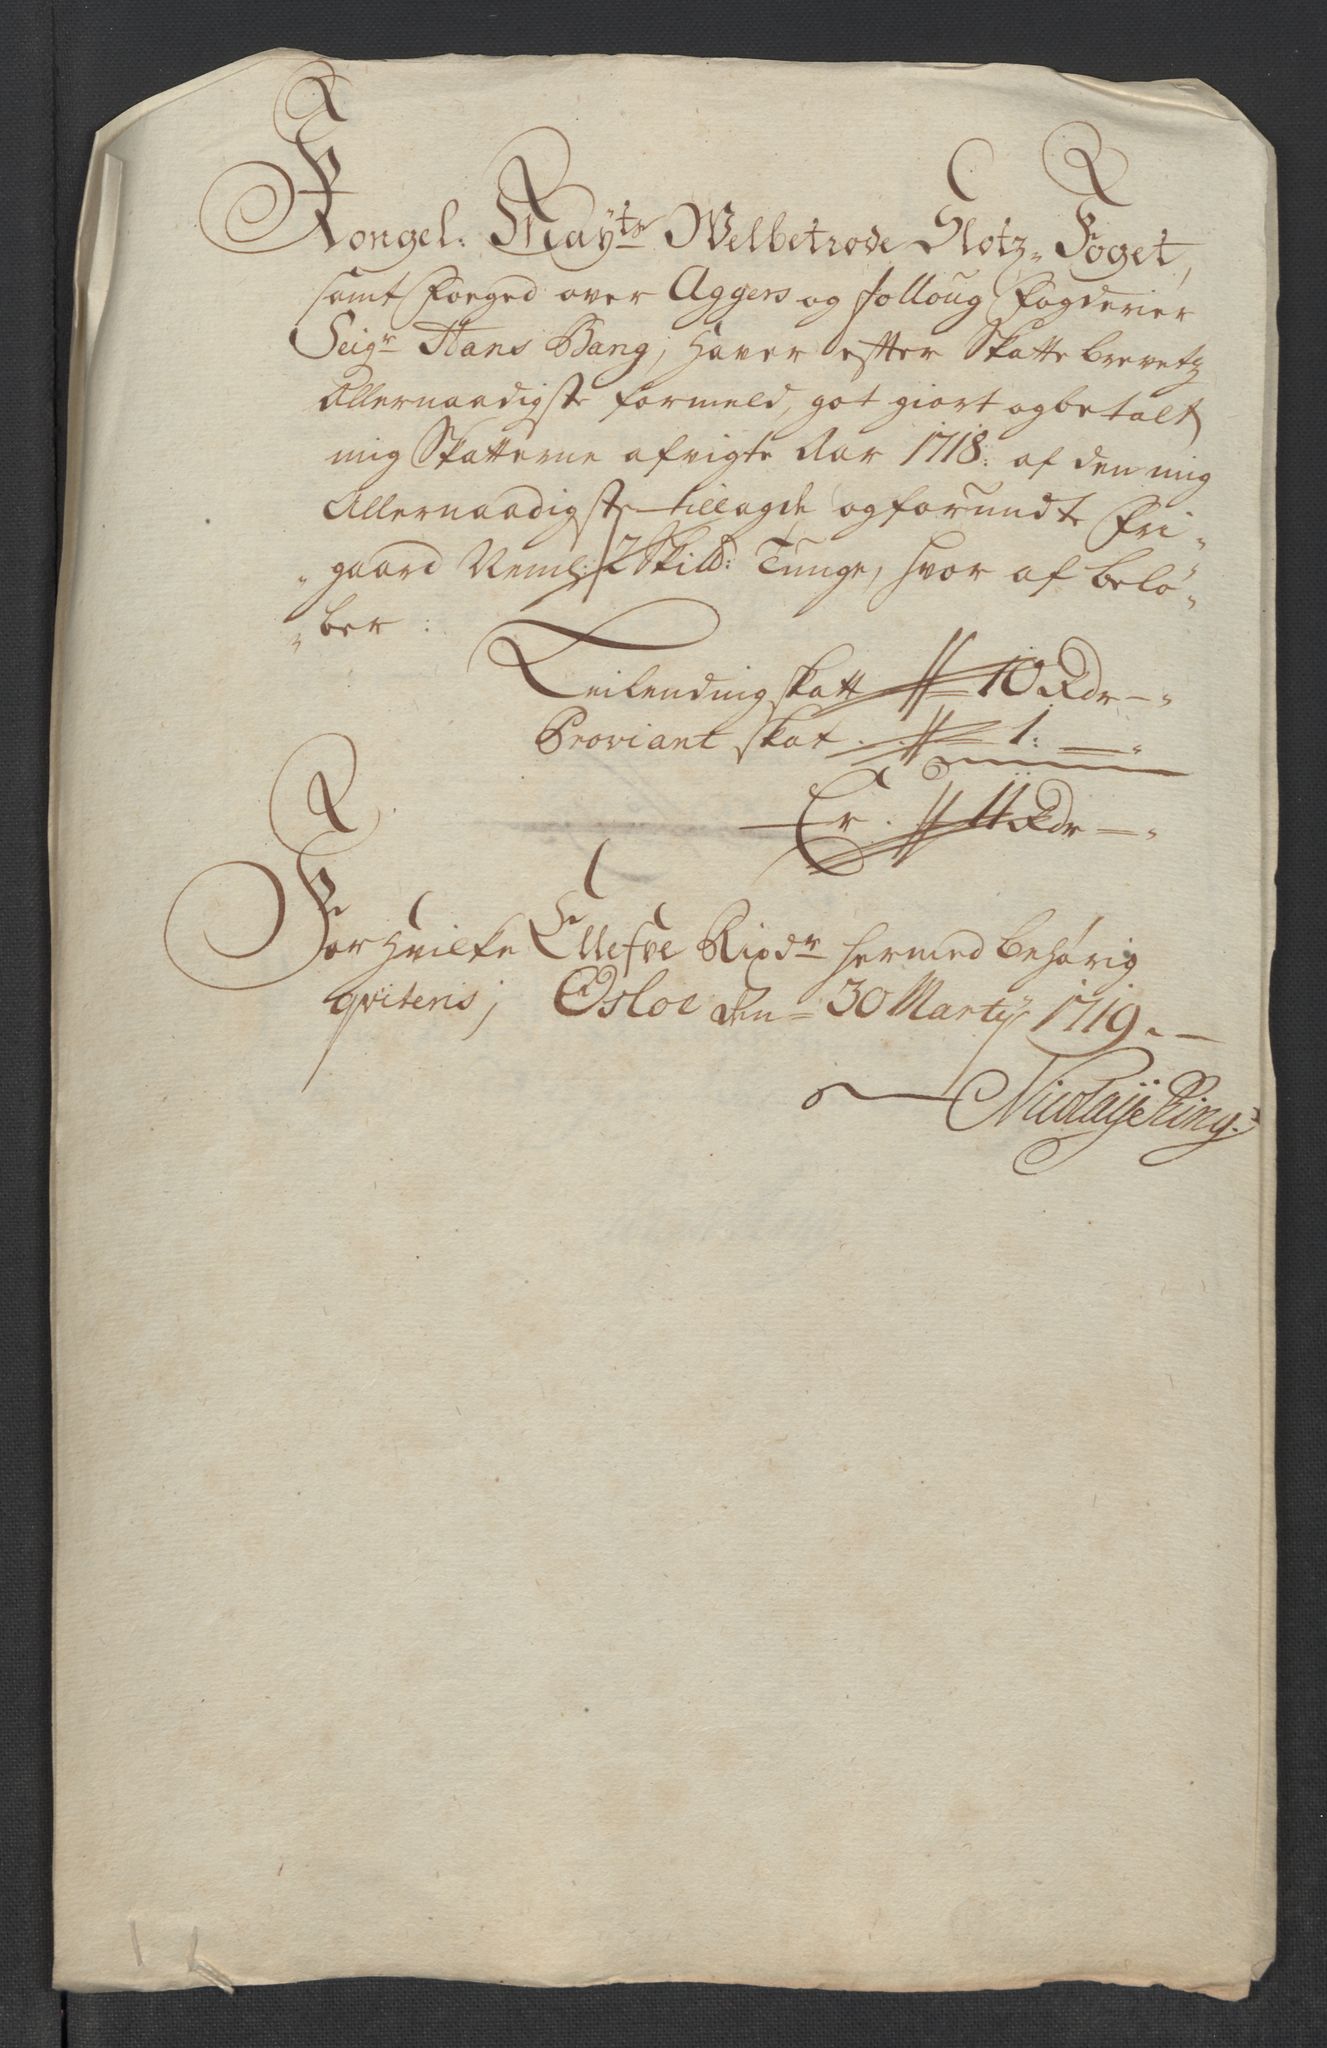 Kongel: Mayts Welbetrode Slotz-Foget,
samt Foeged over Aggers og folloug Fogderier
Seigr Hans Bang, haver efter Skattebrevetz
Allernaadigste formeld, got giort og betalt
mig Skatterne afvigte Aar 1718: af den mig
Allernaadigste tillagde og forundte Fri-
gaard Neml: 12 Skild: Tunge, hvor af belø-
ber:
Leilendingskatt 10 Rdr -
Proviantskat . . 1: -
Er . 11 Rdr -
For hvilke Ellefve Rixdr hermed behørig
qviteris; Osloe den 30 Marty 1719. -
Nicolaije Ring.